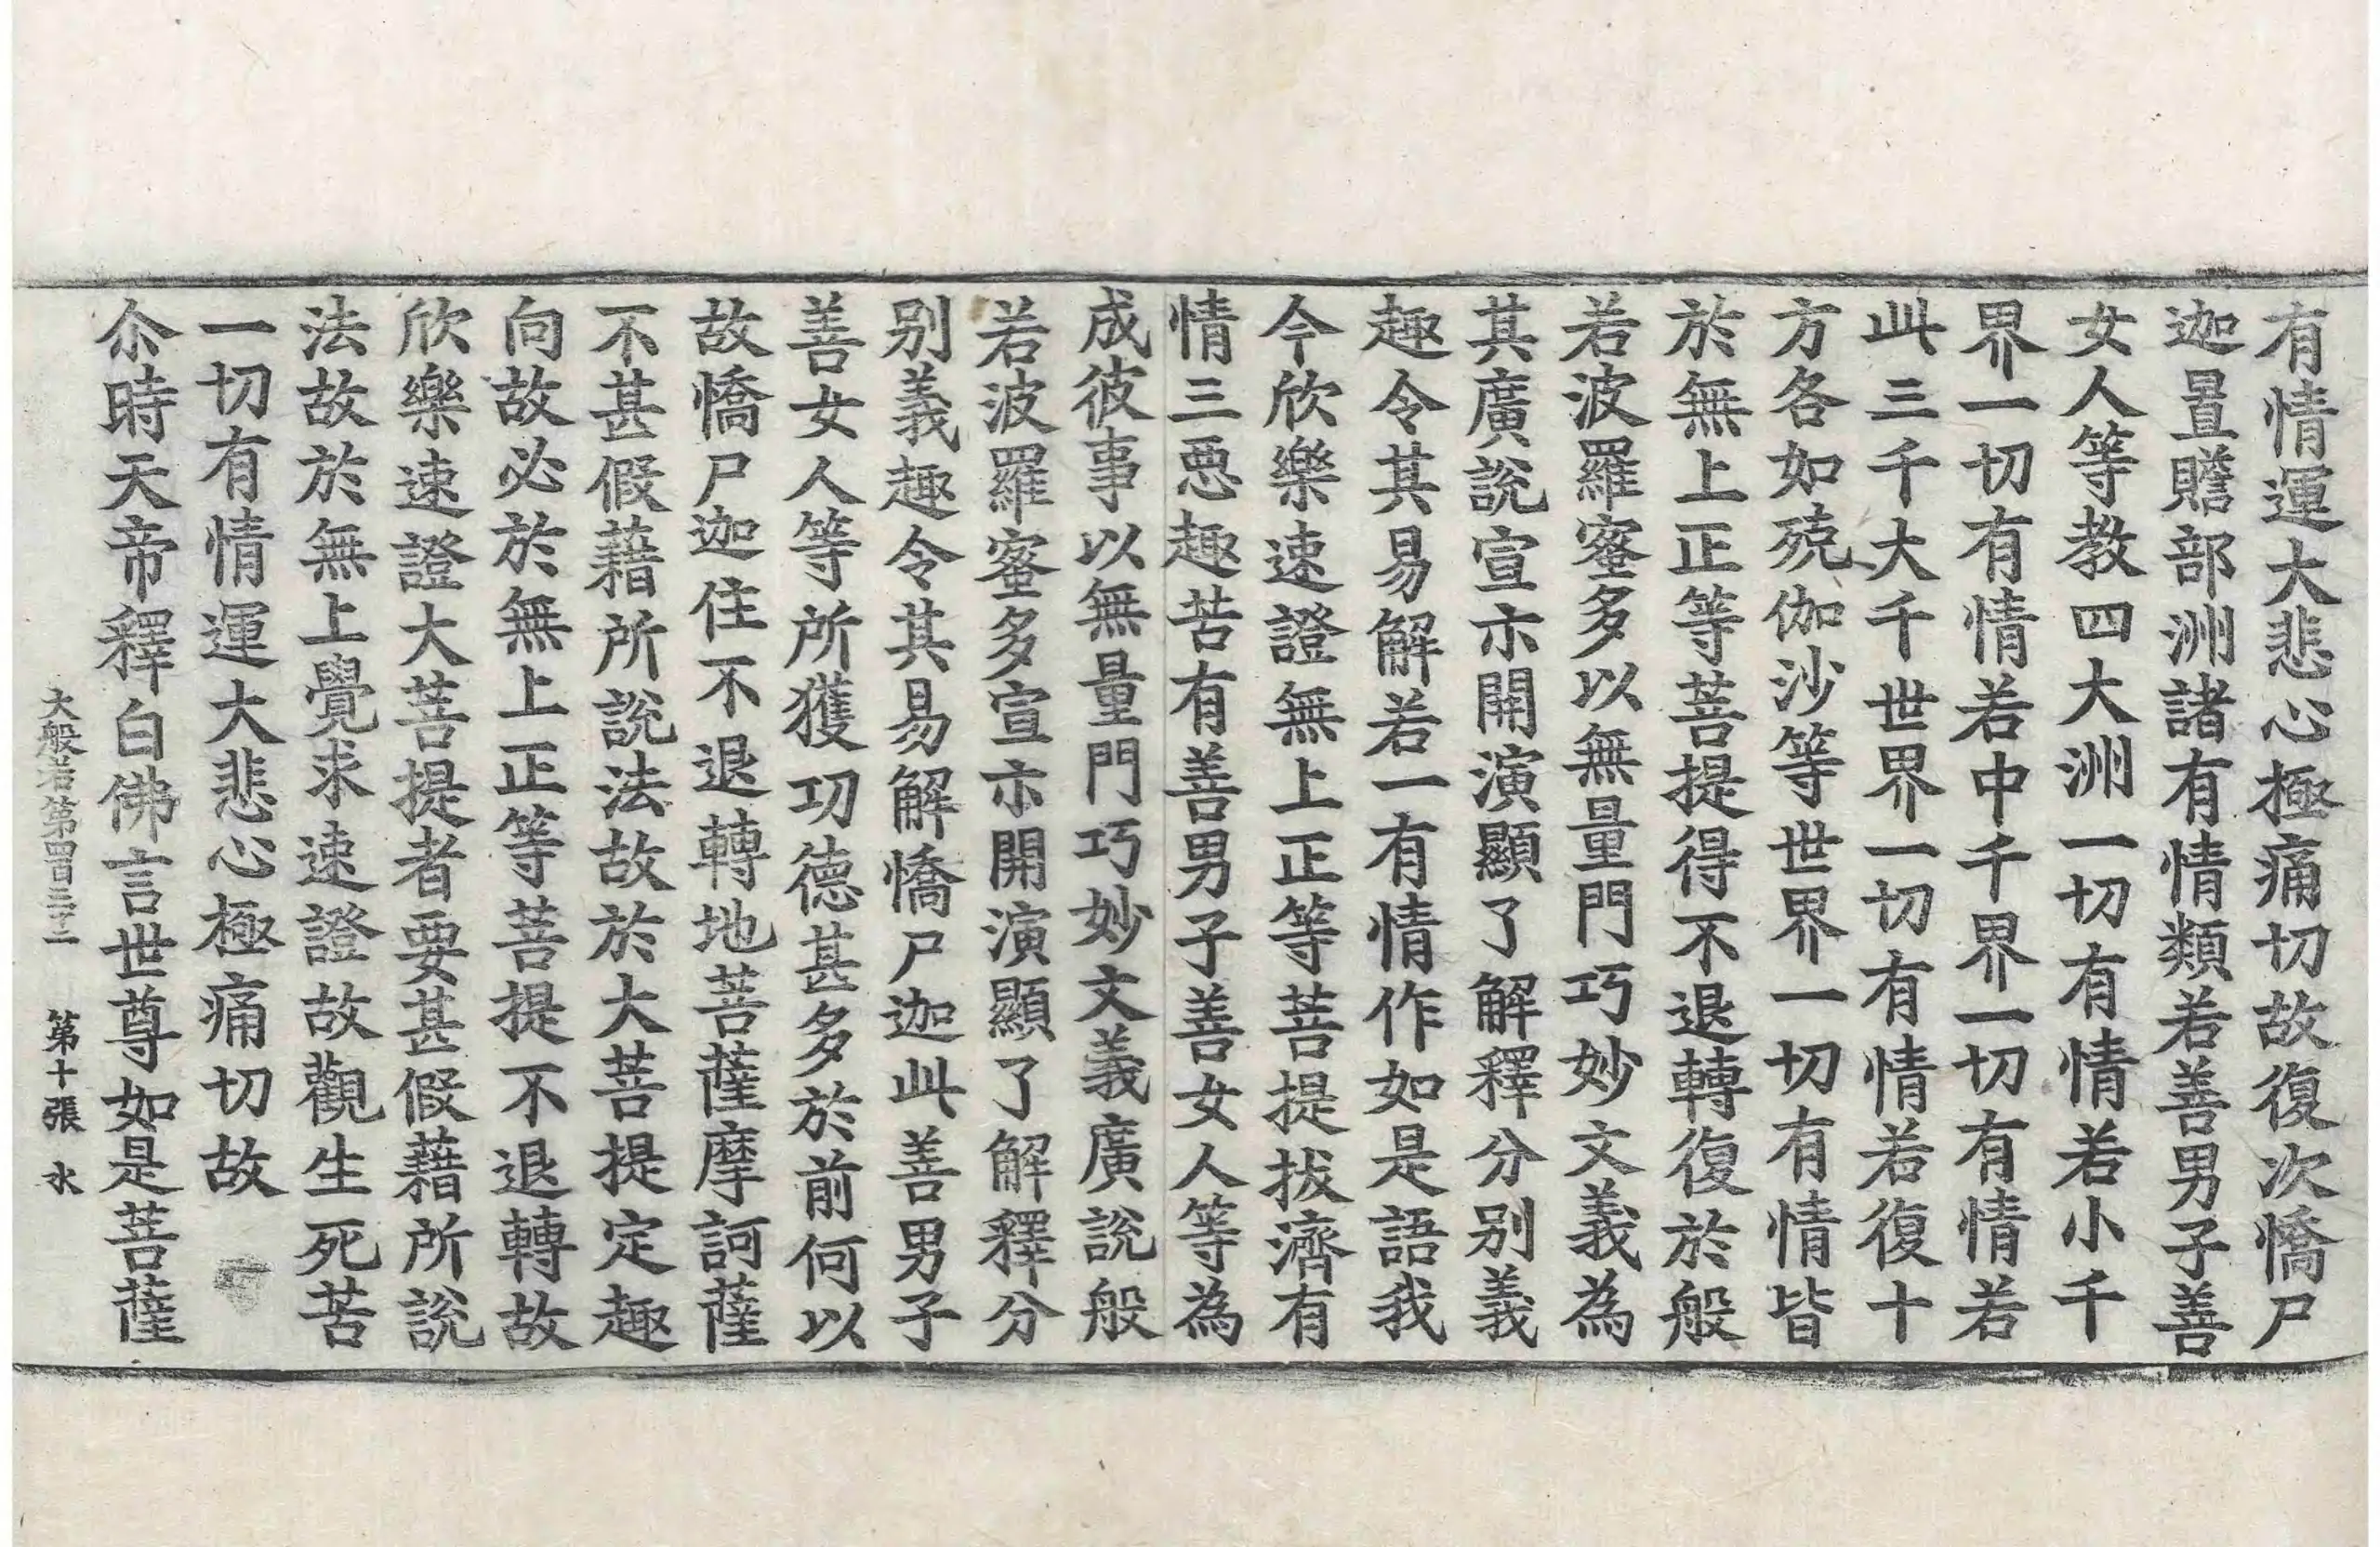 有情運大悲心極痛切故復次憍尸
迦置贍部洲諸有情類若善男子善
女人等教四大洲一切有情若小千
界一切有情若中千界一切有情若
此三千大千世界一切有情若復十
方各如殑伽沙等世界一切有情皆
於無上正等菩提得不退轉復於般
若波羅蜜多以無量門巧妙文義為
其廣說宣示開演顯了解釋分別義
趣令其易解若一有情作如是語我
今欣樂速證無上正等菩提拔濟有
情三惡趣苦有善男子善女人等為
成彼事以無量門巧妙文義廣說般
若波羅蜜多宣示開演顯了解釋分
別義趣令其易解憍尸迦此善男子
善女人等所獲功德甚多於前何以
故憍尸迦住不退轉地菩薩摩訶薩
不甚假藉所說法故於大菩提定趣
向故必於無上正等菩提不退轉故
欣樂速證大菩提者要甚假藉所說
法故於無上覺求速證故觀生死苦
一切有情運大悲心極痛切故
尒時天帝釋白佛言世尊如是菩薩
大般若第四百三十二　第十張　水